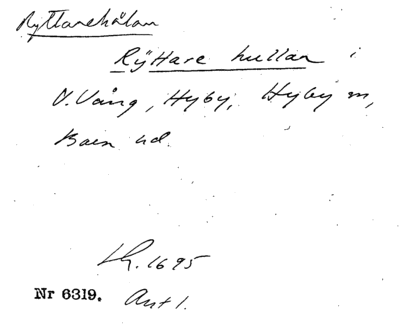 Ryttarehålan
Rÿttare hullan i
V. Vång, Hyby, Hyby m,
Baen ud.
Lh. 1695
Nr 6319. Ant 1.